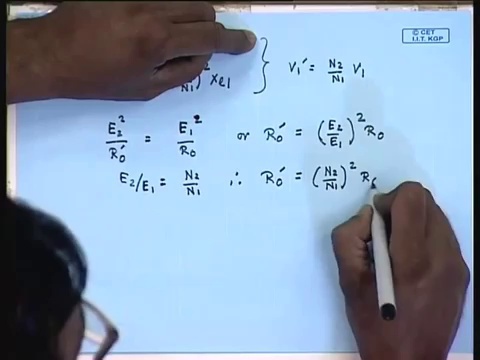 © CET
I.I.T. KGP
N1)² xe1 } V1' = N2/N1 V1
E2²/R0' = E1²/R0 or R0' = (E2/E1)² R0
E2/E1 = N2/N1 ∴ R0' = (N2/N1)² R